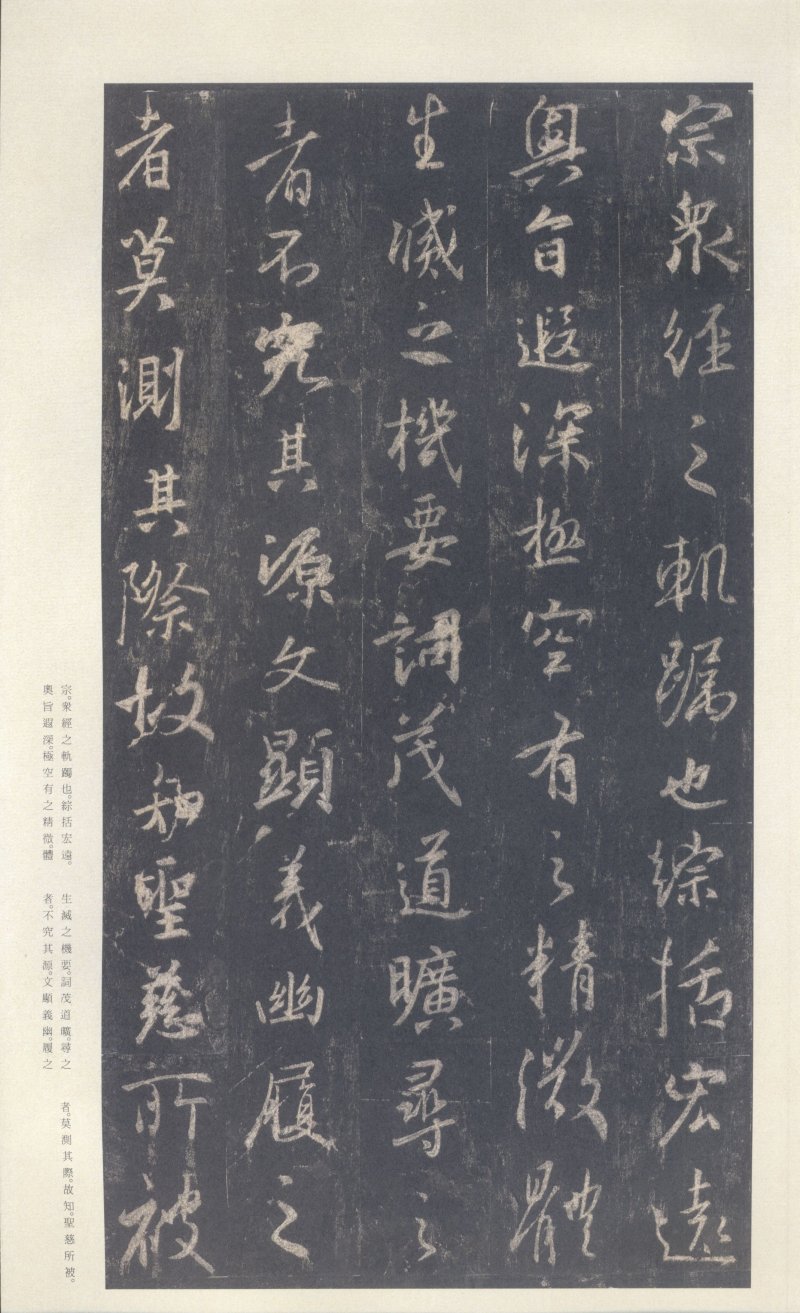 宗衆經之軌躅也綜括宏遠
奧旨遐深極空有之精微體
生滅之機要詞茂道曠尋之
者不究其源文顯義幽履之
者莫測其際故知聖慈所被
宗。衆經之軌躅也。綜括宏遠。
奧旨遐深。極空有之精微。體
生滅之機要。詞茂道曠。尋之
者。不究其源。文顯義幽。履之
者。莫測其際。故知。聖慈所被。